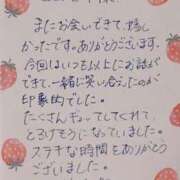 またお会いできて、嬉し
かったです。ありがとうございます。
今回はいつも以上にお話が
できて、一緒に笑い合えたのが
印象的でした。
たくさんギュッてしてくれて、
とろけそうになっていました。
ステキな時間をありがとう
ございました。